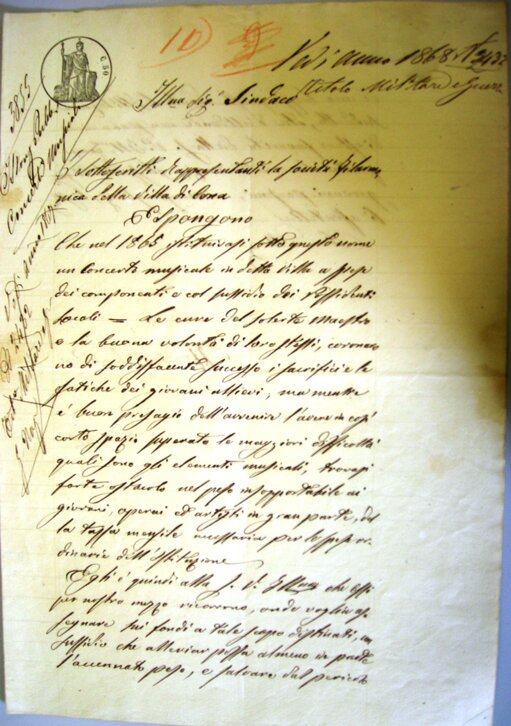 C. 50
10
Vedi anno 1868
Titolo Militare e Guerra
3855
Illmo Sig. Sindaco
I Sottoscritti Rappresentanti la società filarmo
nica della Villa di Cona
Espongono
Che nel 1865 istituivasi sotto questo nome
un Concerto musicale in detta villa a spese
dei componenti e col sussidio dei Possidenti
locali = Le cure del solerte Maestro
e la buona volontà di loro stessi, corona
rono di soddisfacente successo i sacrifici e le
fatiche dei giovani allievi, ma mentre
è buon presagio dell'avvenire l'avere in così
corto spazio superato le maggiori difficoltà
quali sono gli elementi musicali, trovasi
forte ostacolo nel peso insopportabile ai
giovani, operai ed artisti in gran parte, del
la tassa mensile necessaria per le spese or
dinarie dell'Istituzione
Egli è quindi alla S. V. Illma che essi
per nostro mezzo ricorrono, onde voglia as
segnare sui fondi a tale scopo destinati, un
sussidio che alleviar possa almeno in parte
l'accennato peso, e salvare dal pericolo